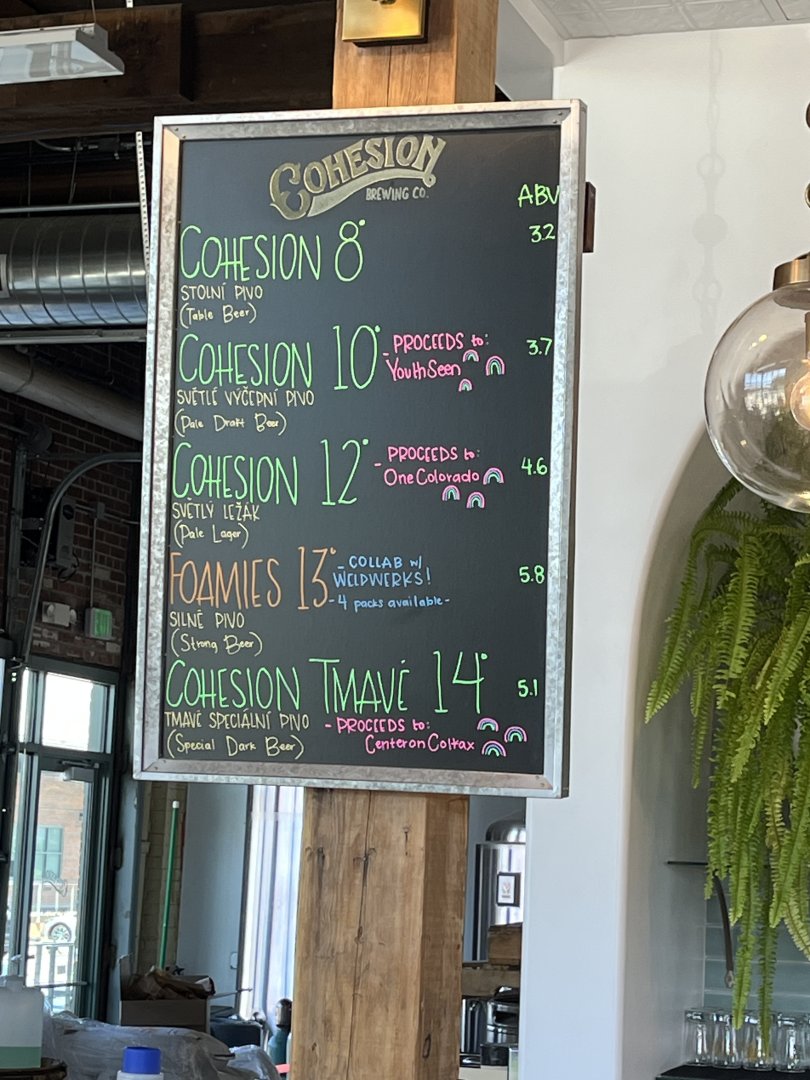 COHESION
BREWING CO.
ABV
COHESION 8° 3.2
STOLNÍ PIVO
(Table Beer)
COHESION 10° - PROCEEDS to: 3.7
YouthSeen
SVĚTLÉ VÝČEPNÍ PIVO
(Pale Draft Beer)
COHESION 12° - PROCEEDS to: 4.6
OneColorado
SVĚTLÝ LEŽÁK
(Pale Lager)
FOAMIES 13° - COLLAB w/ 5.8
WELDWERKS!
- 4 packs available -
SILNÉ PIVO
(Strong Beer)
COHESION TMAVÉ 14° 5.1
TMAVÉ SPECIÁLNÍ PIVO - PROCEEDS to:
(Special Dark Beer) Center on Colfax